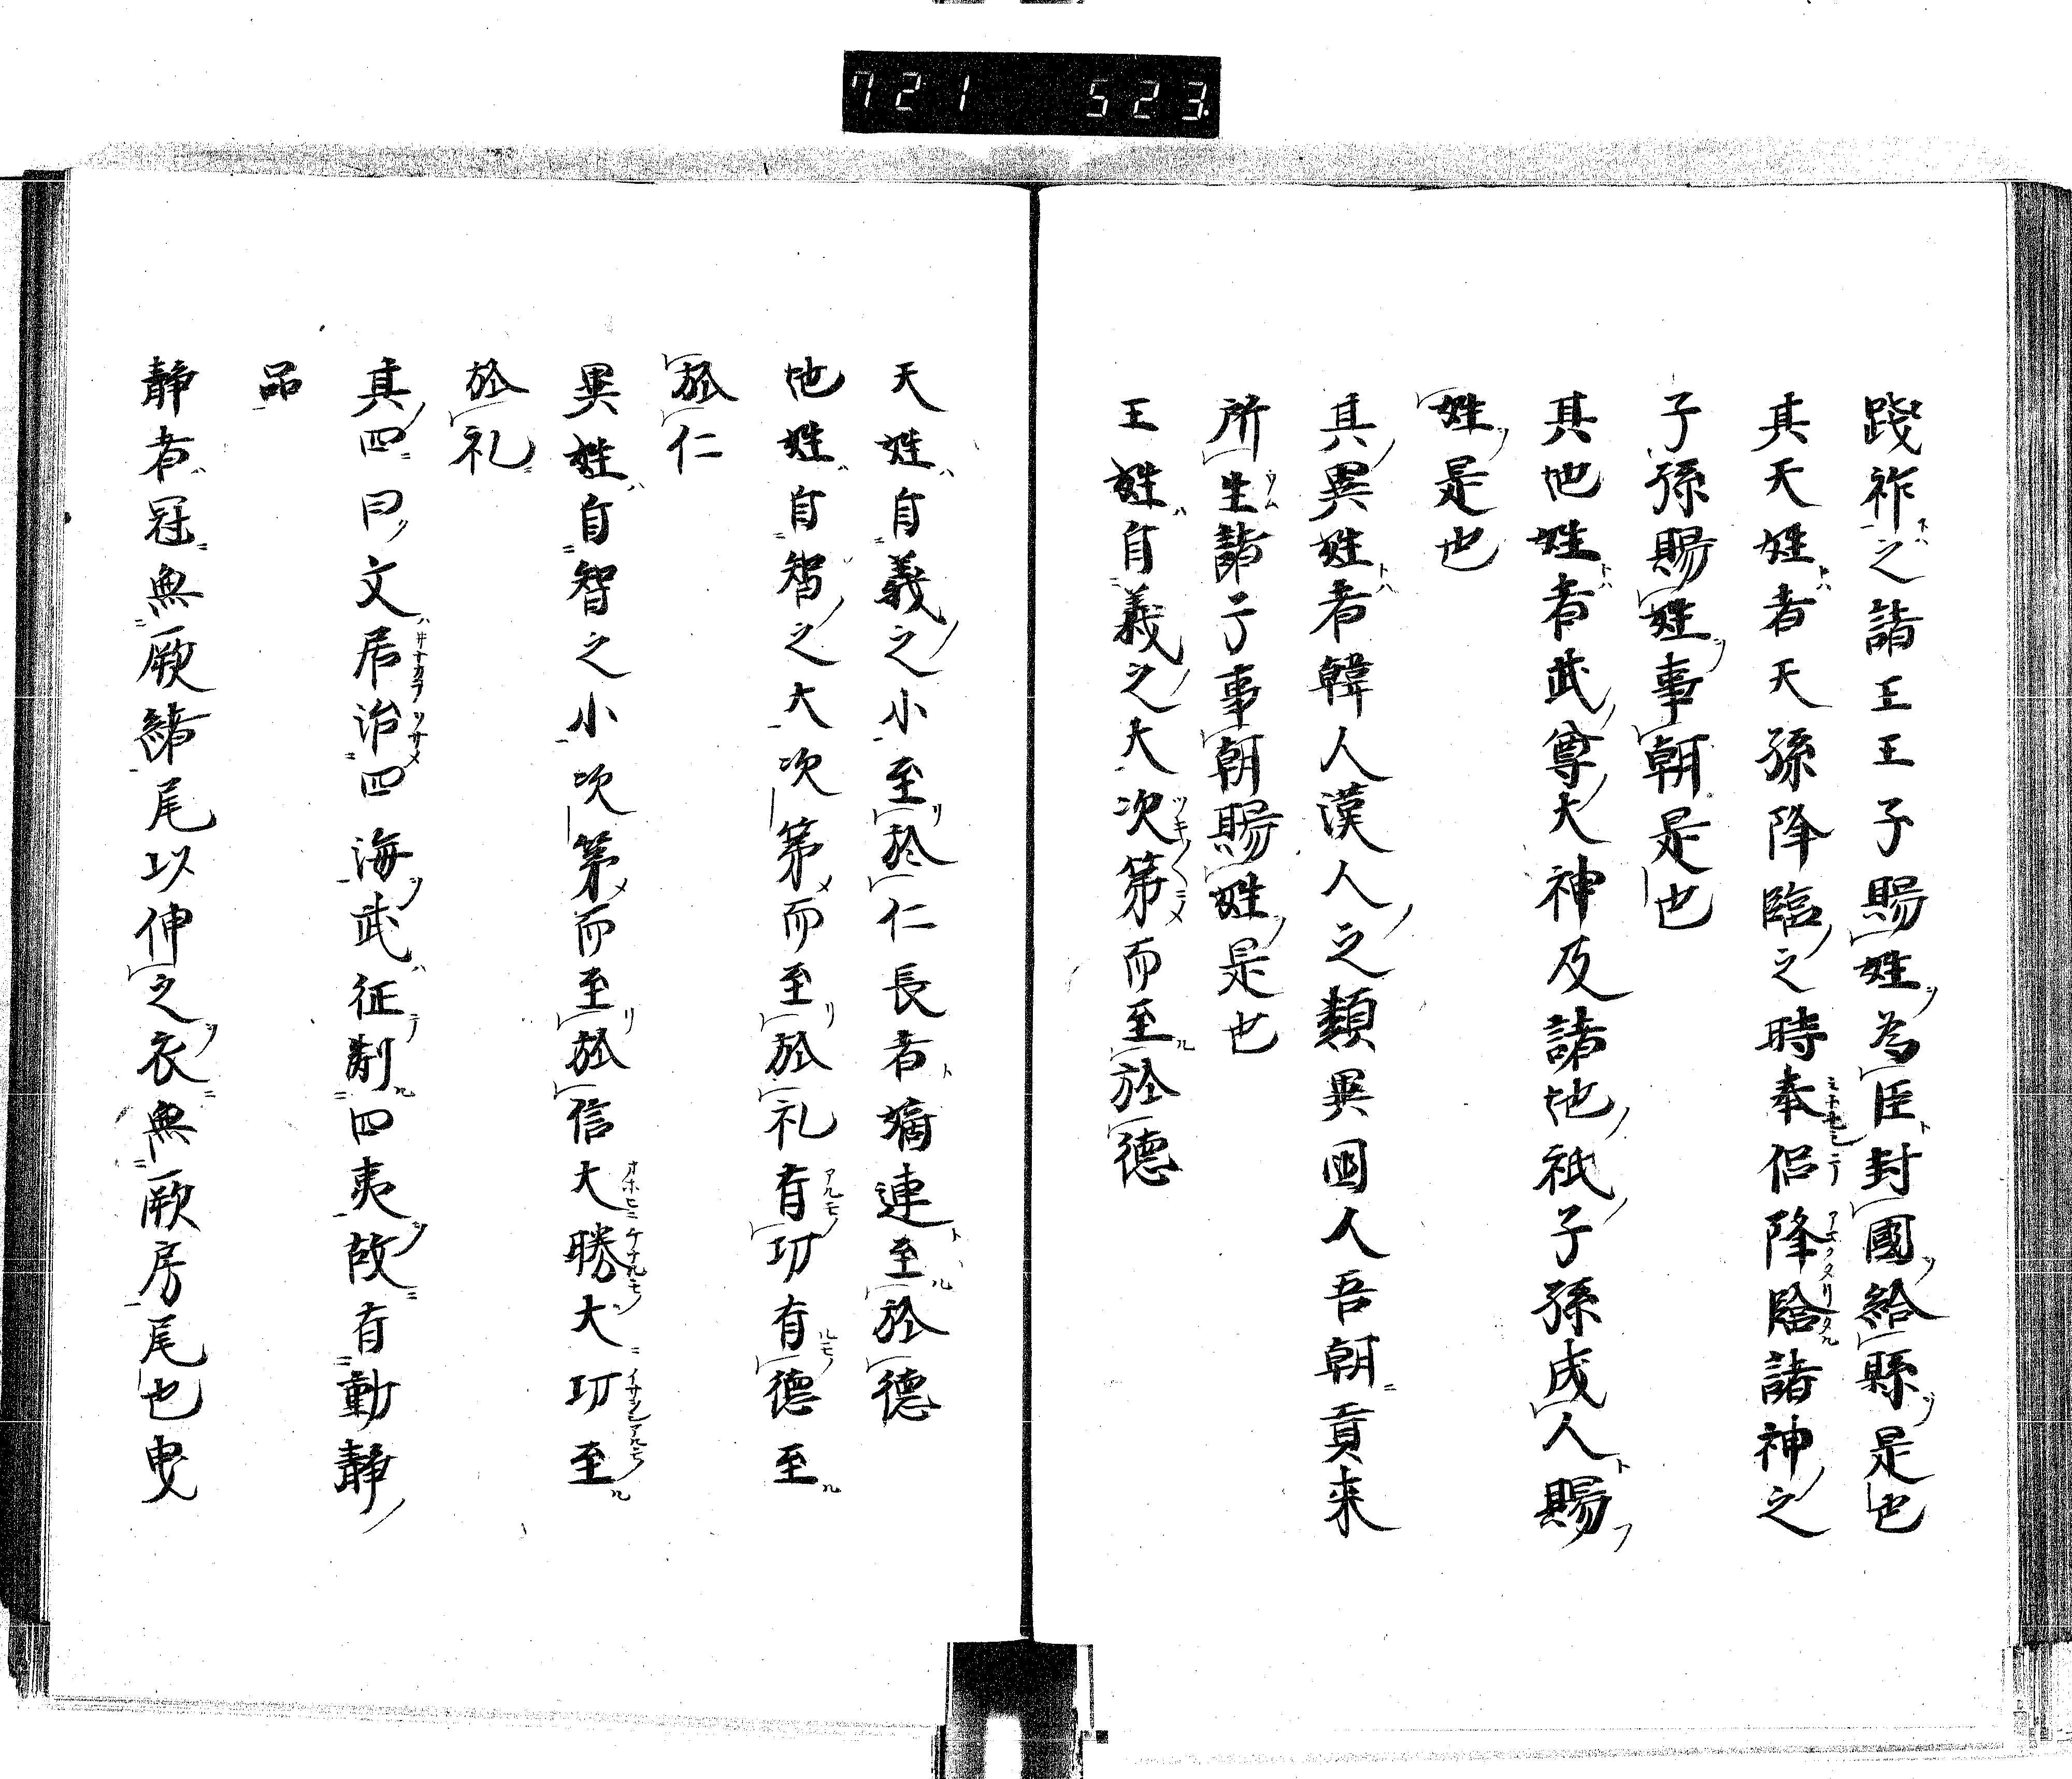 721 523
踐祚之諸王王子賜姓為臣封國給縣是也
其天姓者天孫降臨之時奉侶降臨諸神之
子孫賜姓事朝是也
其地姓者武尊大神及諸地祇子孫成人賜
姓是也
其異姓者韓人漢人之類異国人吾朝貢来
所生諸子事朝賜姓是也
王姓自義之大次第而至於德
天姓自義之小至於仁長者嫡連至於德
地姓自智之大次第而至於礼有功有德至
於仁
異姓自智之小次第而至於信大勝大功至
於礼
其四曰文居治四海武征制四夷故有動静
品
静者冠無厥緒尾以伸之衣無厥房尾也曳